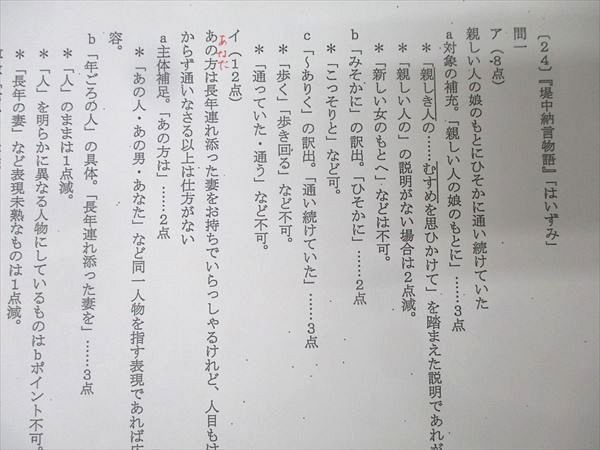 〔２４〕『堤中納言物語』「はいずみ」
問一
ア（-８点）
親しい人の娘のもとにひそかに通い続けていた
a 対象の補充。「親しい人の娘のもとに」……３点
＊「親しき人の……むすめを思ひかけて」を踏まえた説明であれ
＊「親しい人の」の説明がない場合は２点減。
＊「新しい女のもとへ」などは不可。
b 「みそかに」の訳出。「ひそかに」……２点
＊「こっそりと」など可。
c 「～ありく」の訳出。「通い続けていた」……３点
＊「歩く」「歩き回る」など不可。
＊「通っていた・通う」など不可。
イ（１２点）
あなた
あの方は長年連れ添った妻をお持ちでいらっしゃるけれど、人目もは
からず通いなさる以上は仕方がない
a 主体補足。「あの方は」……２点
＊「あの人・あの男・あなた」など同一人物を指す表現であれば
容。
b 「年ごろの人」の具体。「長年連れ添った妻を」……３点
＊「人」のままは１点減。
＊「人」を明らかに異なる人物にしているものはbポイント不可。
＊「長年の妻」など表現未熟なものは１点減。